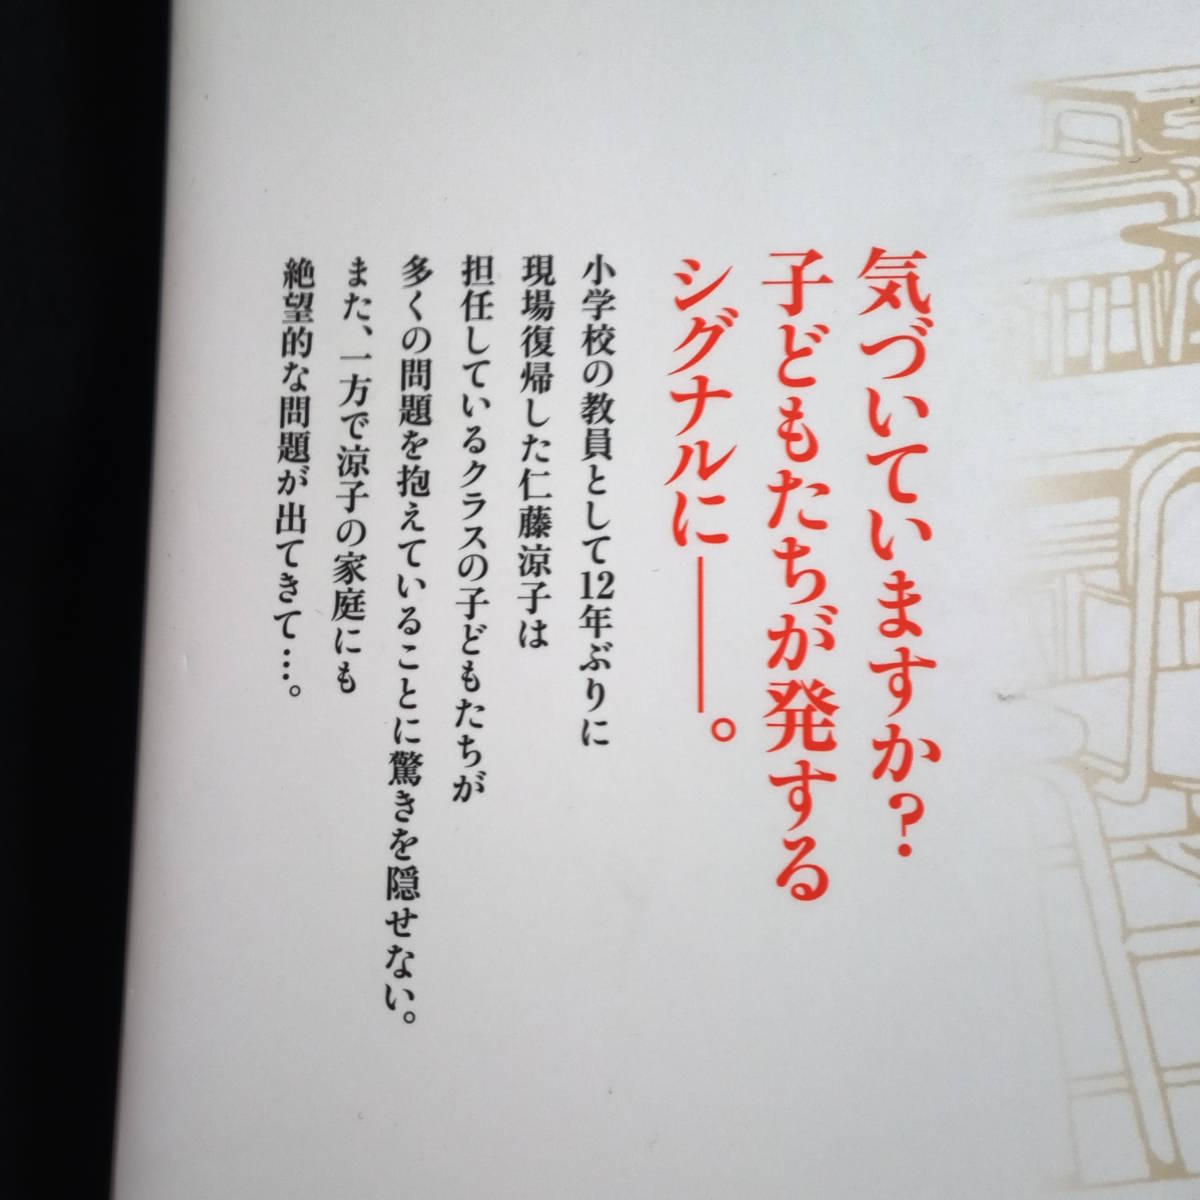 気づいていますか？
子どもたちが発する
シグナルに――。
小学校の教員として12年ぶりに
現場復帰した仁藤涼子は
担任しているクラスの子どもたちが
多くの問題を抱えていることに驚きを隠せない。
また、一方で涼子の家庭にも
絶望的な問題が出てきて…。